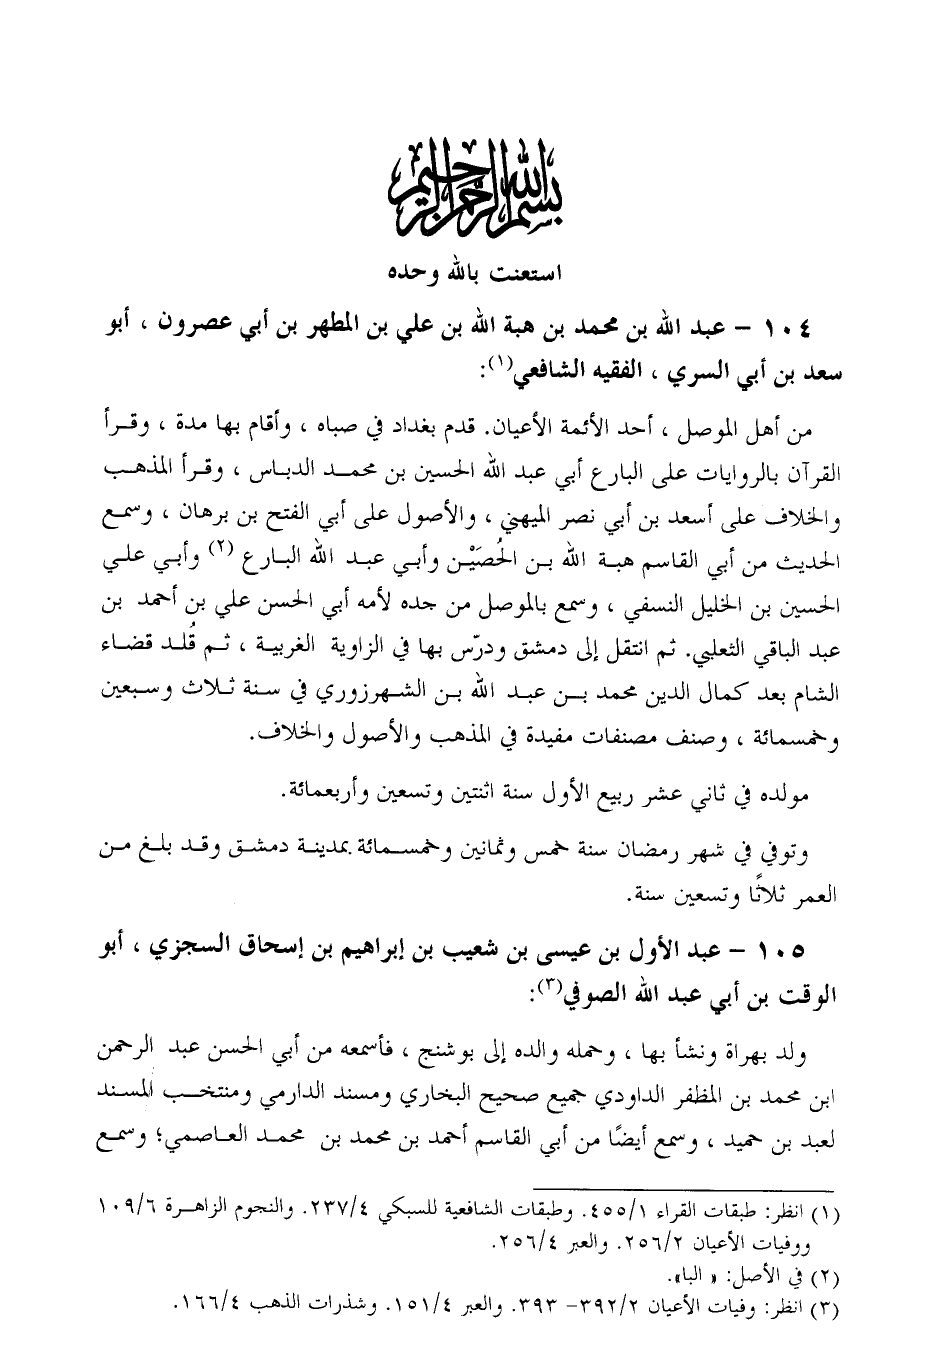 بسم الله الرحمن الرحيم
استعنت بالله وحده
١٠٤ – عبد الله بن محمد بن هبة الله بن علي بن المطهر بن أبي عصرون ، أبو
سعد بن أبي السري ، الفقيه الشافعي(١):
من أهل الموصل ، أحد الأئمة الأعيان. قدم بغداد في صباه ، وأقام بها مدة ، وقرأ
القرآن بالروايات على البارع أبي عبد الله الحسين بن محمد الدباس ، وقرأ المذهب
والخلاف على أسعد بن أبي نصر الميهني ، والأصول على أبي الفتح بن برهان ، وسمع
الحديث من أبي القاسم هبة الله بن الحُصَيْن وأبي عبد الله البارع (٢) وأبي علي
الحسين بن الخليل النسفي ، وسمع بالموصل من جده لأمه أبي الحسن علي بن أحمد بن
عبد الباقي الثعلبي. ثم انتقل إلى دمشق ودرّس بها في الزاوية الغربية ، ثم قُلد قضاء
الشام بعد كمال الدين محمد بن عبد الله بن الشهرزوري في سنة ثلاث وسبعين
وخمسمائة ، وصنف مصنفات مفيدة في المذهب والأصول والخلاف.
مولده في ثاني عشر ربيع الأول سنة اثنتين وتسعين وأربعمائة.
وتوفي في شهر رمضان سنة خمس وثمانين وخمسمائة بمدينة دمشق وقد بلغ من
العمر ثلاثًا وتسعين سنة.
١٠٥ – عبد الأول بن عيسى بن شعيب بن إبراهيم بن إسحاق السجزي ، أبو
الوقت بن أبي عبد الله الصوفي(٣):
ولد بهراة ونشأ بها ، وحمله والده إلى بوشنج ، فأسمعه من أبي الحسن عبد الرحمن
ابن محمد بن المظفر الداودي جميع صحيح البخاري ومسند الدارمي ومنتخب المسند
لعبد بن حميد ، وسمع أيضًا من أبي القاسم أحمد بن محمد بن محمد العاصمي؛ وسمع
(١) انظر: طبقات القراء ٤٥٥/١. وطبقات الشافعية للسبكي ٢٣٧/٤. والنجوم الزاهرة ١٠٩/٦
ووفيات الأعيان ٢٥٦/٢. والعبر ٢٥٦/٤.
(٢) في الأصل: « البا».
(٣) انظر: وفيات الأعيان ٣٩٢/٢– ٣٩٣. والعبر ١٥١/٤. وشذرات الذهب ١٦٦/٤.